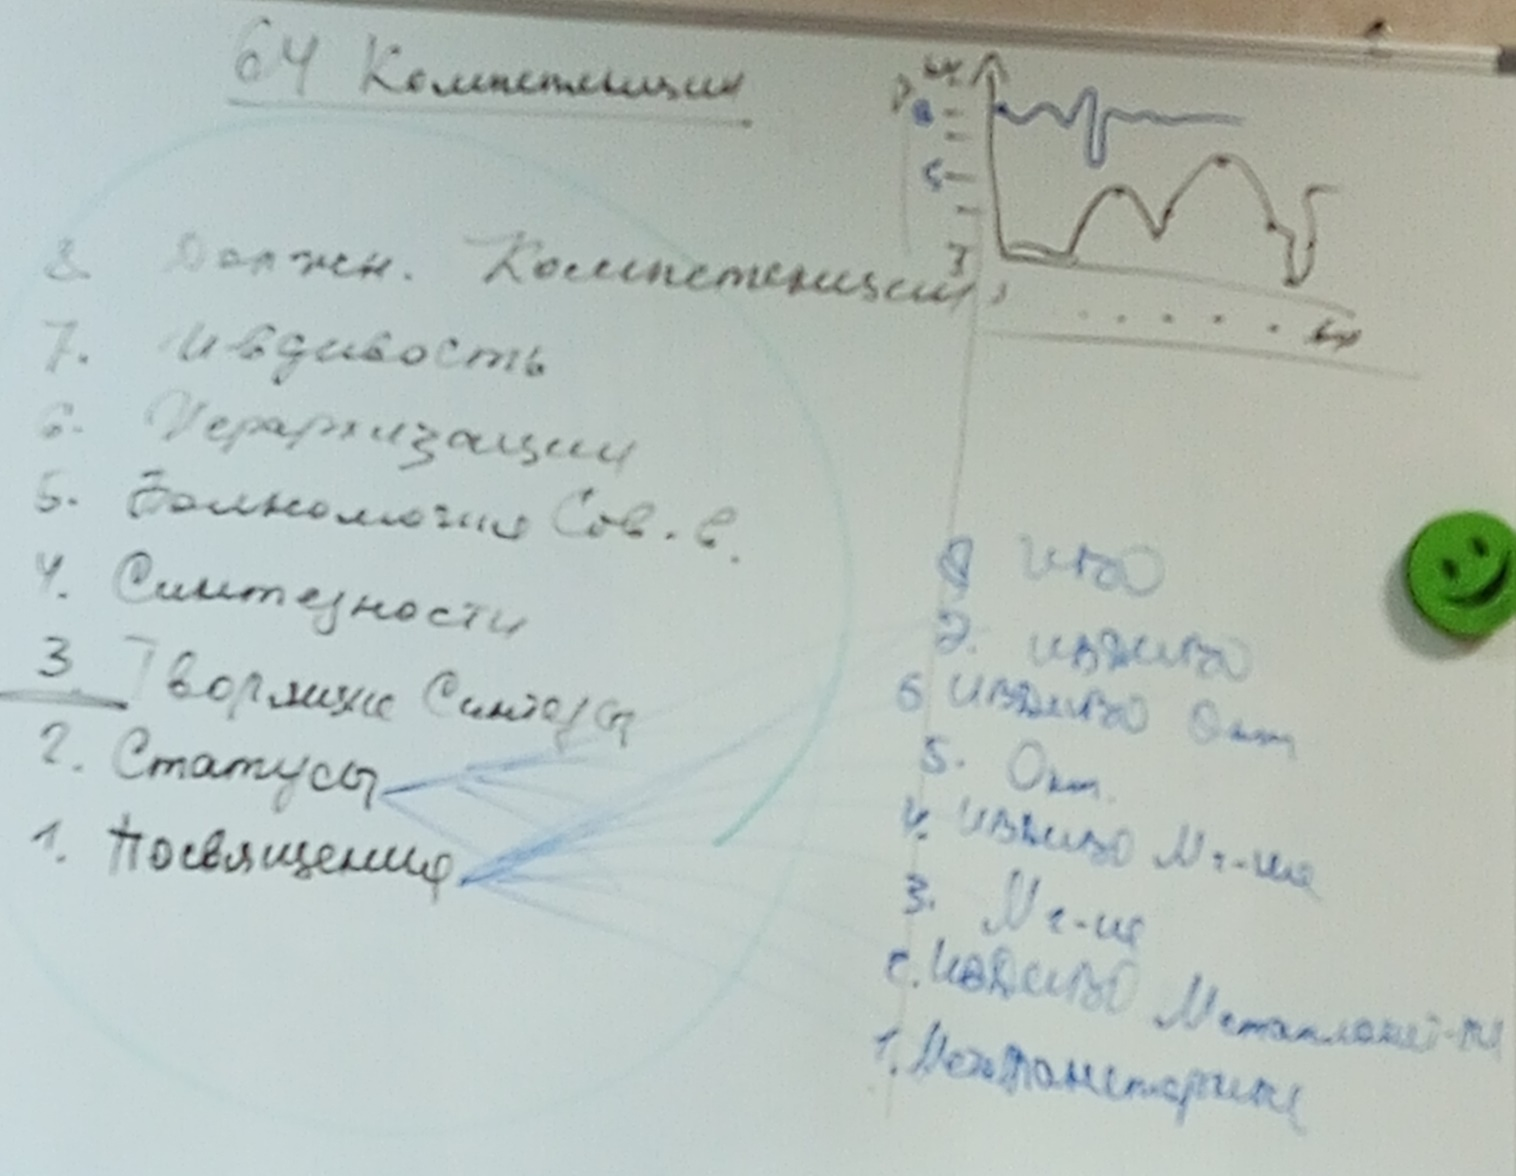 64 Компетенции
8. Должн. Компетенции
7. Ивдивость
6. Иерархизации
5. Полномочия Сов. в.
4. Синтезности
3. Творящие Синтезы
2. Статусы
1. Посвящения
8
5
8 ИВО
7. ИВДИВО
6 ИВДИВО Окт
5. Окт.
4. ИВДИВО Мг-ие
3. Мг-ие
2. ИВДИВО Метапланет-
1. Метапланетарные